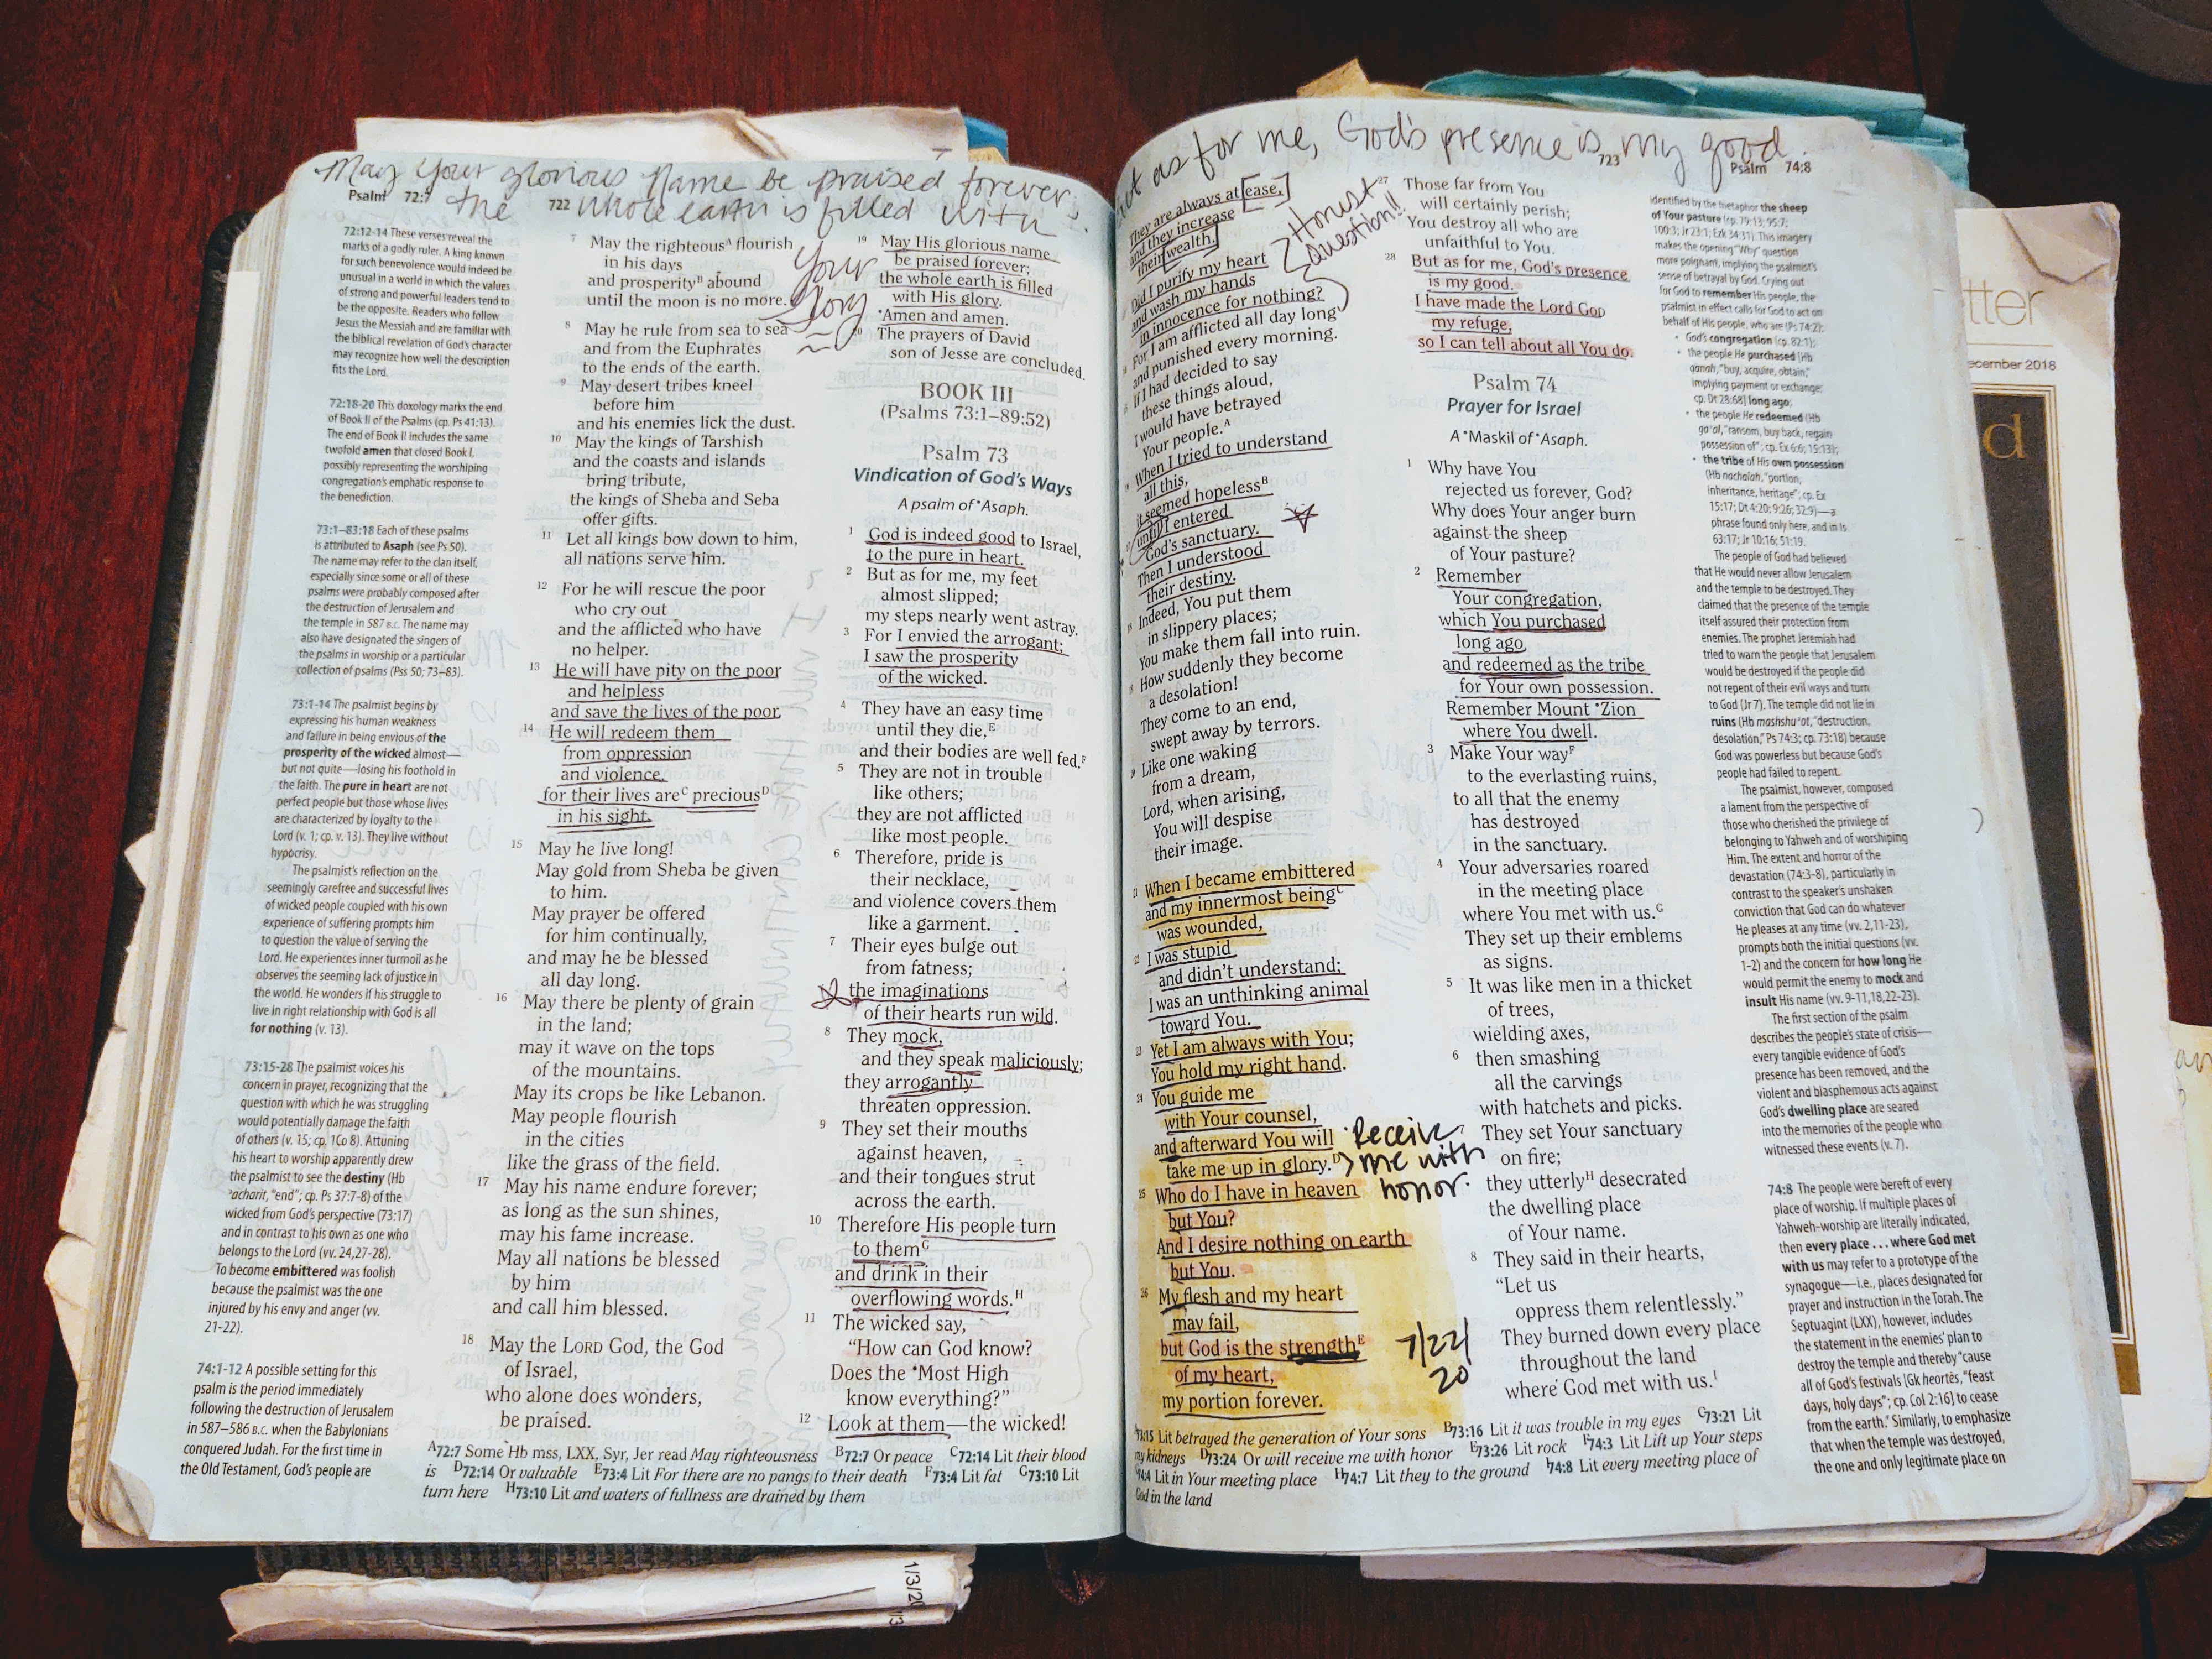 May Your glorious Name be praised forever;
the whole earth is filled with
Your
Glory
Psalm 72:7
722
72:12-14 These verses reveal the
marks of a godly ruler. A king known
for such benevolence would indeed be
unusual in a world in which the values
of strong and powerful leaders tend to
be the opposite. Readers who follow
Jesus the Messiah and are familiar with
the biblical revelation of God's character
may recognize how well the description
fits the Lord.
72:18-20 This doxology marks the end
of Book II of the Psalms (cp. Ps 41:13).
The end of Book II includes the same
twofold amen that closed Book I,
possibly representing the worshiping
congregation's emphatic response to
the benediction.
73:1–83:18 Each of these psalms
is attributed to Asaph (see Ps 50).
The name may refer to the clan itself,
especially since some or all of these
psalms were probably composed after
the destruction of Jerusalem and
the temple in 587 B.C. The name may
also have designated the singers of
the psalms in worship or a particular
collection of psalms (Pss 50; 73–83).
73:1-14 The psalmist begins by
expressing his human weakness
and failure in being envious of the
prosperity of the wicked almost—
but not quite—losing his foothold in
the faith. The pure in heart are not
perfect people but those whose lives
are characterized by loyalty to the
Lord (v. 1; cp. v. 13). They live without
hypocrisy.
The psalmist's reflection on the
seemingly carefree and successful lives
of wicked people coupled with his own
experience of suffering prompts him
to question the value of serving the
Lord. He experiences inner turmoil as he
observes the seeming lack of justice in
the world. He wonders if his struggle to
live in right relationship with God is all
for nothing (v. 13).
73:15-28 The psalmist voices his
concern in prayer, recognizing that the
question with which he was struggling
would potentially damage the faith
of others (v. 15; cp. 1Co 8). Attuning
his heart to worship apparently drew
the psalmist to see the destiny (Hb
'acharit, "end"; cp. Ps 37:7-8) of the
wicked from God's perspective (73:17)
and in contrast to his own as one who
belongs to the Lord (vv. 24,27-28).
To become embittered was foolish
because the psalmist was the one
injured by his envy and anger (vv.
21-22).
74:1-12 A possible setting for this
psalm is the period immediately
following the destruction of Jerusalem
in 587–586 B.C. when the Babylonians
conquered Judah. For the first time in
the Old Testament, God's people are
7 May the righteousA flourish
in his days
and prosperityB abound
until the moon is no more.
8 May he rule from sea to sea
and from the Euphrates
to the ends of the earth.
9 May desert tribes kneel
before him
and his enemies lick the dust.
10 May the kings of Tarshish
and the coasts and islands
bring tribute,
the kings of Sheba and Seba
offer gifts.
11 Let all kings bow down to him,
all nations serve him.
12 For he will rescue the poor
who cry out
and the afflicted who have
no helper.
13 He will have pity on the poor
and helpless
and save the lives of the poor.
14 He will redeem them
from oppression
and violence,
for their lives areC preciousD
in his sight.
15 May he live long!
May gold from Sheba be given
to him.
May prayer be offered
for him continually,
and may he be blessed
all day long.
16 May there be plenty of grain
in the land;
may it wave on the tops
of the mountains.
May its crops be like Lebanon.
May people flourish
in the cities
like the grass of the field.
17 May his name endure forever;
as long as the sun shines,
may his fame increase.
May all nations be blessed
by him
and call him blessed.
18 May the LORD God, the God
of Israel,
who alone does wonders,
be praised.
19 May His glorious name
be praised forever;
the whole earth is filled
with His glory.
•Amen and amen.
20 The prayers of David
son of Jesse are concluded.
BOOK III
(Psalms 73:1–89:52)
Psalm 73
Vindication of God's Ways
A psalm of •Asaph.
1 God is indeed good to Israel,
to the pure in heart.
2 But as for me, my feet
almost slipped;
my steps nearly went astray.
3 For I envied the arrogant;
I saw the prosperity
of the wicked.
4 They have an easy time
until they die,E
and their bodies are well fed.F
5 They are not in trouble
like others;
they are not afflicted
like most people.
6 Therefore, pride is
their necklace,
and violence covers them
like a garment.
7 Their eyes bulge out
from fatness;
the imaginations
of their hearts run wild.
8 They mock,
and they speak maliciously;
they arrogantly
threaten oppression.
9 They set their mouths
against heaven,
and their tongues strut
across the earth.
10 Therefore His people turn
to themG
and drink in their
overflowing words.H
11 The wicked say,
"How can God know?
Does the •Most High
know everything?"
12 Look at them—the wicked!
A72:7 Some Hb mss, LXX, Syr, Jer read May righteousness B72:7 Or peace C72:14 Lit their blood
is D72:14 Or valuable E73:4 Lit For there are no pangs to their death F73:4 Lit fat G73:10 Lit
turn here H73:10 Lit and waters of fullness are drained by them
11/3/20
as for me, God's presence is my good.
723
Psalm 74:8
They are always at ease,
and they increase
their wealth.
Honest
question!!
Did I purify my heart
and wash my hands
in innocence for nothing?
For I am afflicted all day long
and punished every morning.
If I had decided to say
these things aloud,
I would have betrayed
Your people.A
When I tried to understand
all this,
it seemed hopelessB
until I entered
God's sanctuary.
Then I understood
their destiny.
18 Indeed, You put them
in slippery places;
You make them fall into ruin.
19 How suddenly they become
a desolation!
They come to an end,
swept away by terrors.
Like one waking
from a dream,
Lord, when arising,
You will despise
their image.
21 When I became embittered
and my innermost beingC
was wounded,
22 I was stupid
and didn't understand;
I was an unthinking animal
toward You.
23 Yet I am always with You;
You hold my right hand.
24 You guide me
with Your counsel,
and afterward You will
take me up in glory.D
Receive
me with
honor.
25 Who do I have in heaven
but You?
And I desire nothing on earth
but You.
26 My flesh and my heart
may fail,
but God is the strengthE
of my heart,
my portion forever.
7/22/
20
27 Those far from You
will certainly perish;
You destroy all who are
unfaithful to You.
28 But as for me, God's presence
is my good.
I have made the Lord GOD
my refuge,
so I can tell about all You do.
Psalm 74
Prayer for Israel
A •Maskil of •Asaph.
1 Why have You
rejected us forever, God?
Why does Your anger burn
against the sheep
of Your pasture?
2 Remember
Your congregation,
which You purchased
long ago
and redeemed as the tribe
for Your own possession.
Remember Mount •Zion
where You dwell.
3 Make Your wayF
to the everlasting ruins,
to all that the enemy
has destroyed
in the sanctuary.
4 Your adversaries roared
in the meeting place
where You met with us.G
They set up their emblems
as signs.
5 It was like men in a thicket
of trees,
wielding axes,
6 then smashing
all the carvings
with hatchets and picks.
They set Your sanctuary
on fire;
they utterlyH desecrated
the dwelling place
of Your name.
8 They said in their hearts,
"Let us
oppress them relentlessly."
They burned down every place
throughout the land
where God met with us.I
A73:15 Lit betrayed the generation of Your sons B73:16 Lit it was trouble in my eyes C73:21 Lit
my kidneys D73:24 Or will receive me with honor E73:26 Lit rock F74:3 Lit Lift up Your steps
G74:4 Lit in Your meeting place H74:7 Lit they to the ground I74:8 Lit every meeting place of
God in the land
identified by the metaphor the sheep
of Your pasture (cp. 79:13; 95:7;
100:3; Jr 23:1; Ezk 34:31). This imagery
makes the opening "Why" question
more poignant, implying the psalmist's
sense of betrayal by God. Crying out
for God to remember His people, the
psalmist in effect calls for God to act on
behalf of His people, who are (Ps 74:2):
• God's congregation (cp. 82:1);
• the people He purchased (Hb
qanah, "buy, acquire, obtain,"
implying payment or exchange;
cp. Dt 28:68) long ago;
• the people He redeemed (Hb
ga'al, "ransom, buy back, regain
possession of"; cp. Ex 6:6; 15:13);
• the tribe of His own possession
(Hb nachalah, "portion,
inheritance, heritage"; cp. Ex
15:17; Dt 4:20; 9:26; 32:9)—a
phrase found only here, and in Is
63:17; Jr 10:16; 51:19.
The people of God had believed
that He would never allow Jerusalem
and the temple to be destroyed. They
claimed that the presence of the temple
itself assured their protection from
enemies. The prophet Jeremiah had
tried to warn the people that Jerusalem
would be destroyed if the people did
not repent of their evil ways and turn
to God (Jr 7). The temple did not lie in
ruins (Hb mashshu'ot, "destruction,
desolation," Ps 74:3; cp. 73:18) because
God was powerless but because God's
people had failed to repent.
The psalmist, however, composed
a lament from the perspective of
those who cherished the privilege of
belonging to Yahweh and of worshiping
Him. The extent and horror of the
devastation (74:3-8), particularly in
contrast to the speaker's unshaken
conviction that God can do whatever
He pleases at any time (vv. 2,11-23),
prompts both the initial questions (vv.
1-2) and the concern for how long He
would permit the enemy to mock and
insult His name (vv. 9-11,18,22-23).
The first section of the psalm
describes the people's state of crisis—
every tangible evidence of God's
presence has been removed, and the
violent and blasphemous acts against
God's dwelling place are seared
into the memories of the people who
witnessed these events (v. 7).
74:8 The people were bereft of every
place of worship. If multiple places of
Yahweh-worship are literally indicated,
then every place . . . where God met
with us may refer to a prototype of the
synagogue—i.e., places designated for
prayer and instruction in the Torah. The
Septuagint (LXX), however, includes
the statement in the enemies' plan to
destroy the temple and thereby "cause
all of God's festivals [Gk heortēs, "feast
days, holy days"; cp. Col 2:16] to cease
from the earth." Similarly, to emphasize
that when the temple was destroyed,
the one and only legitimate place on
tter
ecember 2018
d